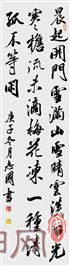 晨起開門雪滿山雪晴雲淡日光
寒檐流未滴梅花凍一種清
孤不等閑
庚子冬月志國書